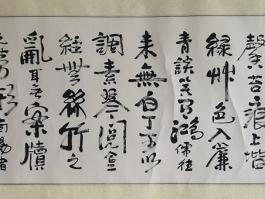 馨苔痕上階
綠艸色入簾
青談笑有鴻儒往
來無白丁可以
調素琴閱金
經無絲竹之
亂耳无案牘
之勞形南陽諸